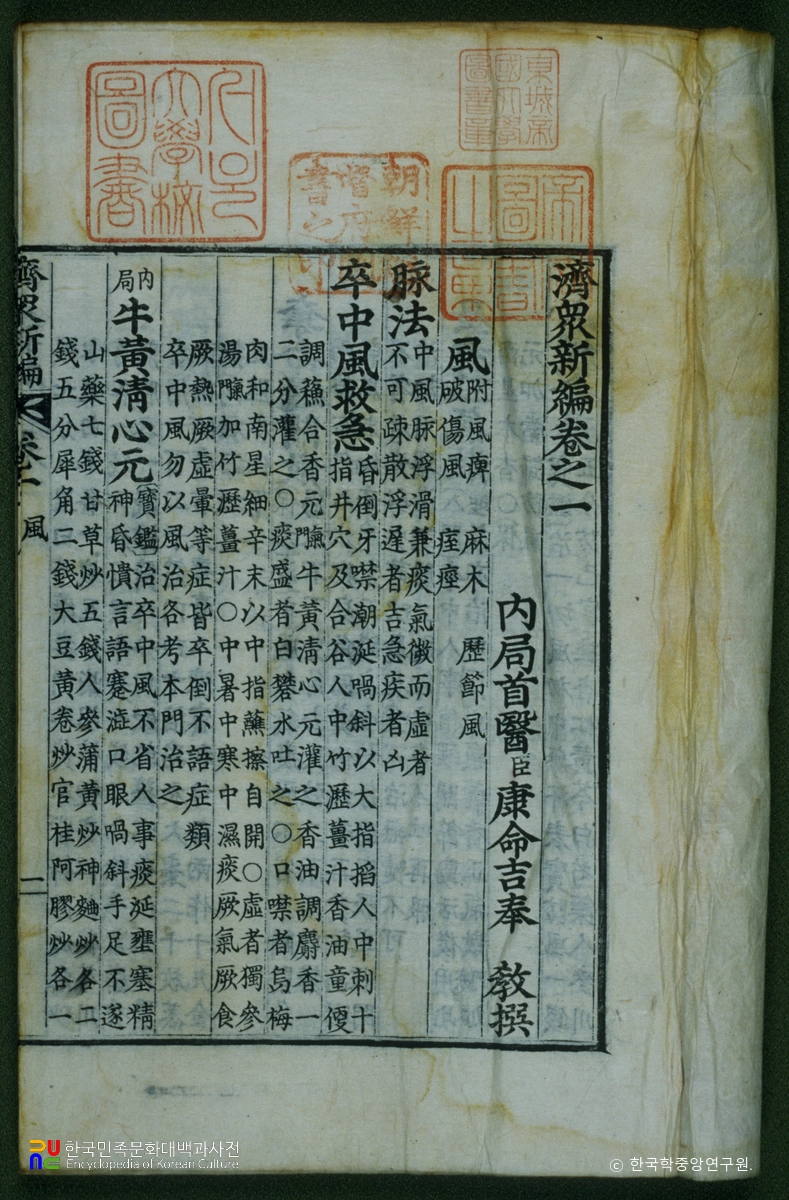 濟眾新編卷之一
內局首醫臣康命吉奉 敎撰
風附風痺 麻木 歷節風
破傷風 痓痙
脉法中風脉浮滑兼痰氣微而虛者
不可疎散浮遲者吉急疾者凶
卒中風救急昏倒牙噤潮涎喎斜以大指搯人中刺十
指井穴及合谷人中竹瀝薑汁香油童便
調蘓合香元牛黃淸心元灌之香油調麝香一
二分灌之〇痰盛者白礬水吐之〇口噤者烏梅
肉和南星細辛末以中指蘸擦自開〇虛者獨參
湯加竹瀝薑汁〇中暑中寒中濕痰厥氣厥食
厥熱厥虛暈等症皆卒倒不語症類
卒中風勿以風治各考本門治之
內局牛黃淸心元寶鑑治卒中風不省人事痰涎壅塞精
神昏憒言語蹇澁口眼喎斜手足不遂
山藥七錢甘草炒五錢人參蒲黃炒神麯炒各二
錢五分犀角二錢大豆黃卷炒官桂阿膠炒各一
濟眾新編 卷一 風 一
朝鮮總督府圖書之印
圖書章
한국민족문화대백과사전
Encyclopedia of Korean Culture
© 한국학중앙연구원.